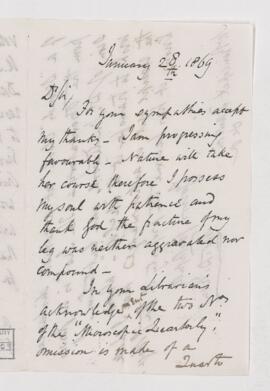 January 28/th 1869
Dr Sir
For your sympathies accept
my thanks - I am progressing
favourably - Nature will take
her course, therefore I possess
my soul with patience and
thank God the fracture of my
leg was neither aggravated nor
compound -
In your Librarian's
acknowledgement of the two Nos
of the "Microscopic Quarterly,"
omission is made of a
Quarto